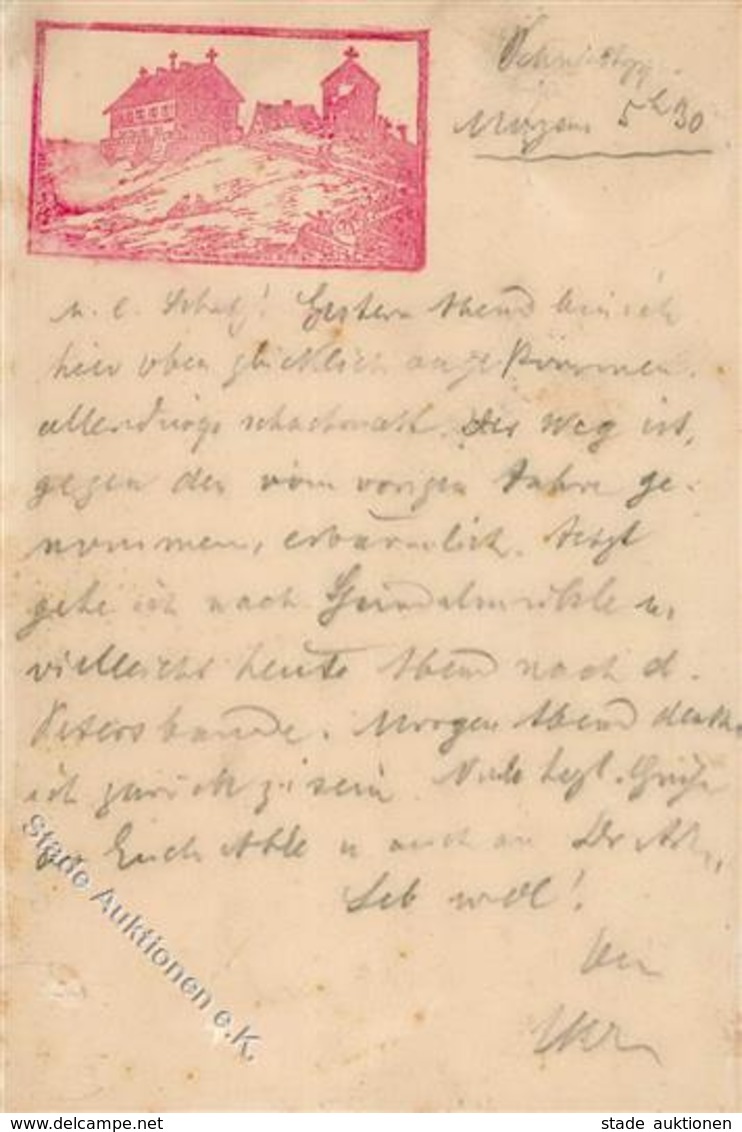 Morgens 5h30
m. l. Schatz! Gestern Abend bin ich
hier oben glücklich angekommen.
allerdings schachmatt. Der Weg ist,
gegen den vom vorigen Jahre ge-
nommen, erbärmlich. Jetzt
gehe ich nach Grindelmühle u.
vielleicht heute Abend nach d.
Petersbaude. Morgen Abend denke
ich zurück z. sein. Viele hzl. Grüße
an Euch Alle u auch an Dr
Leb wohl!
Stade Auktionen e.K.
stade auktionen